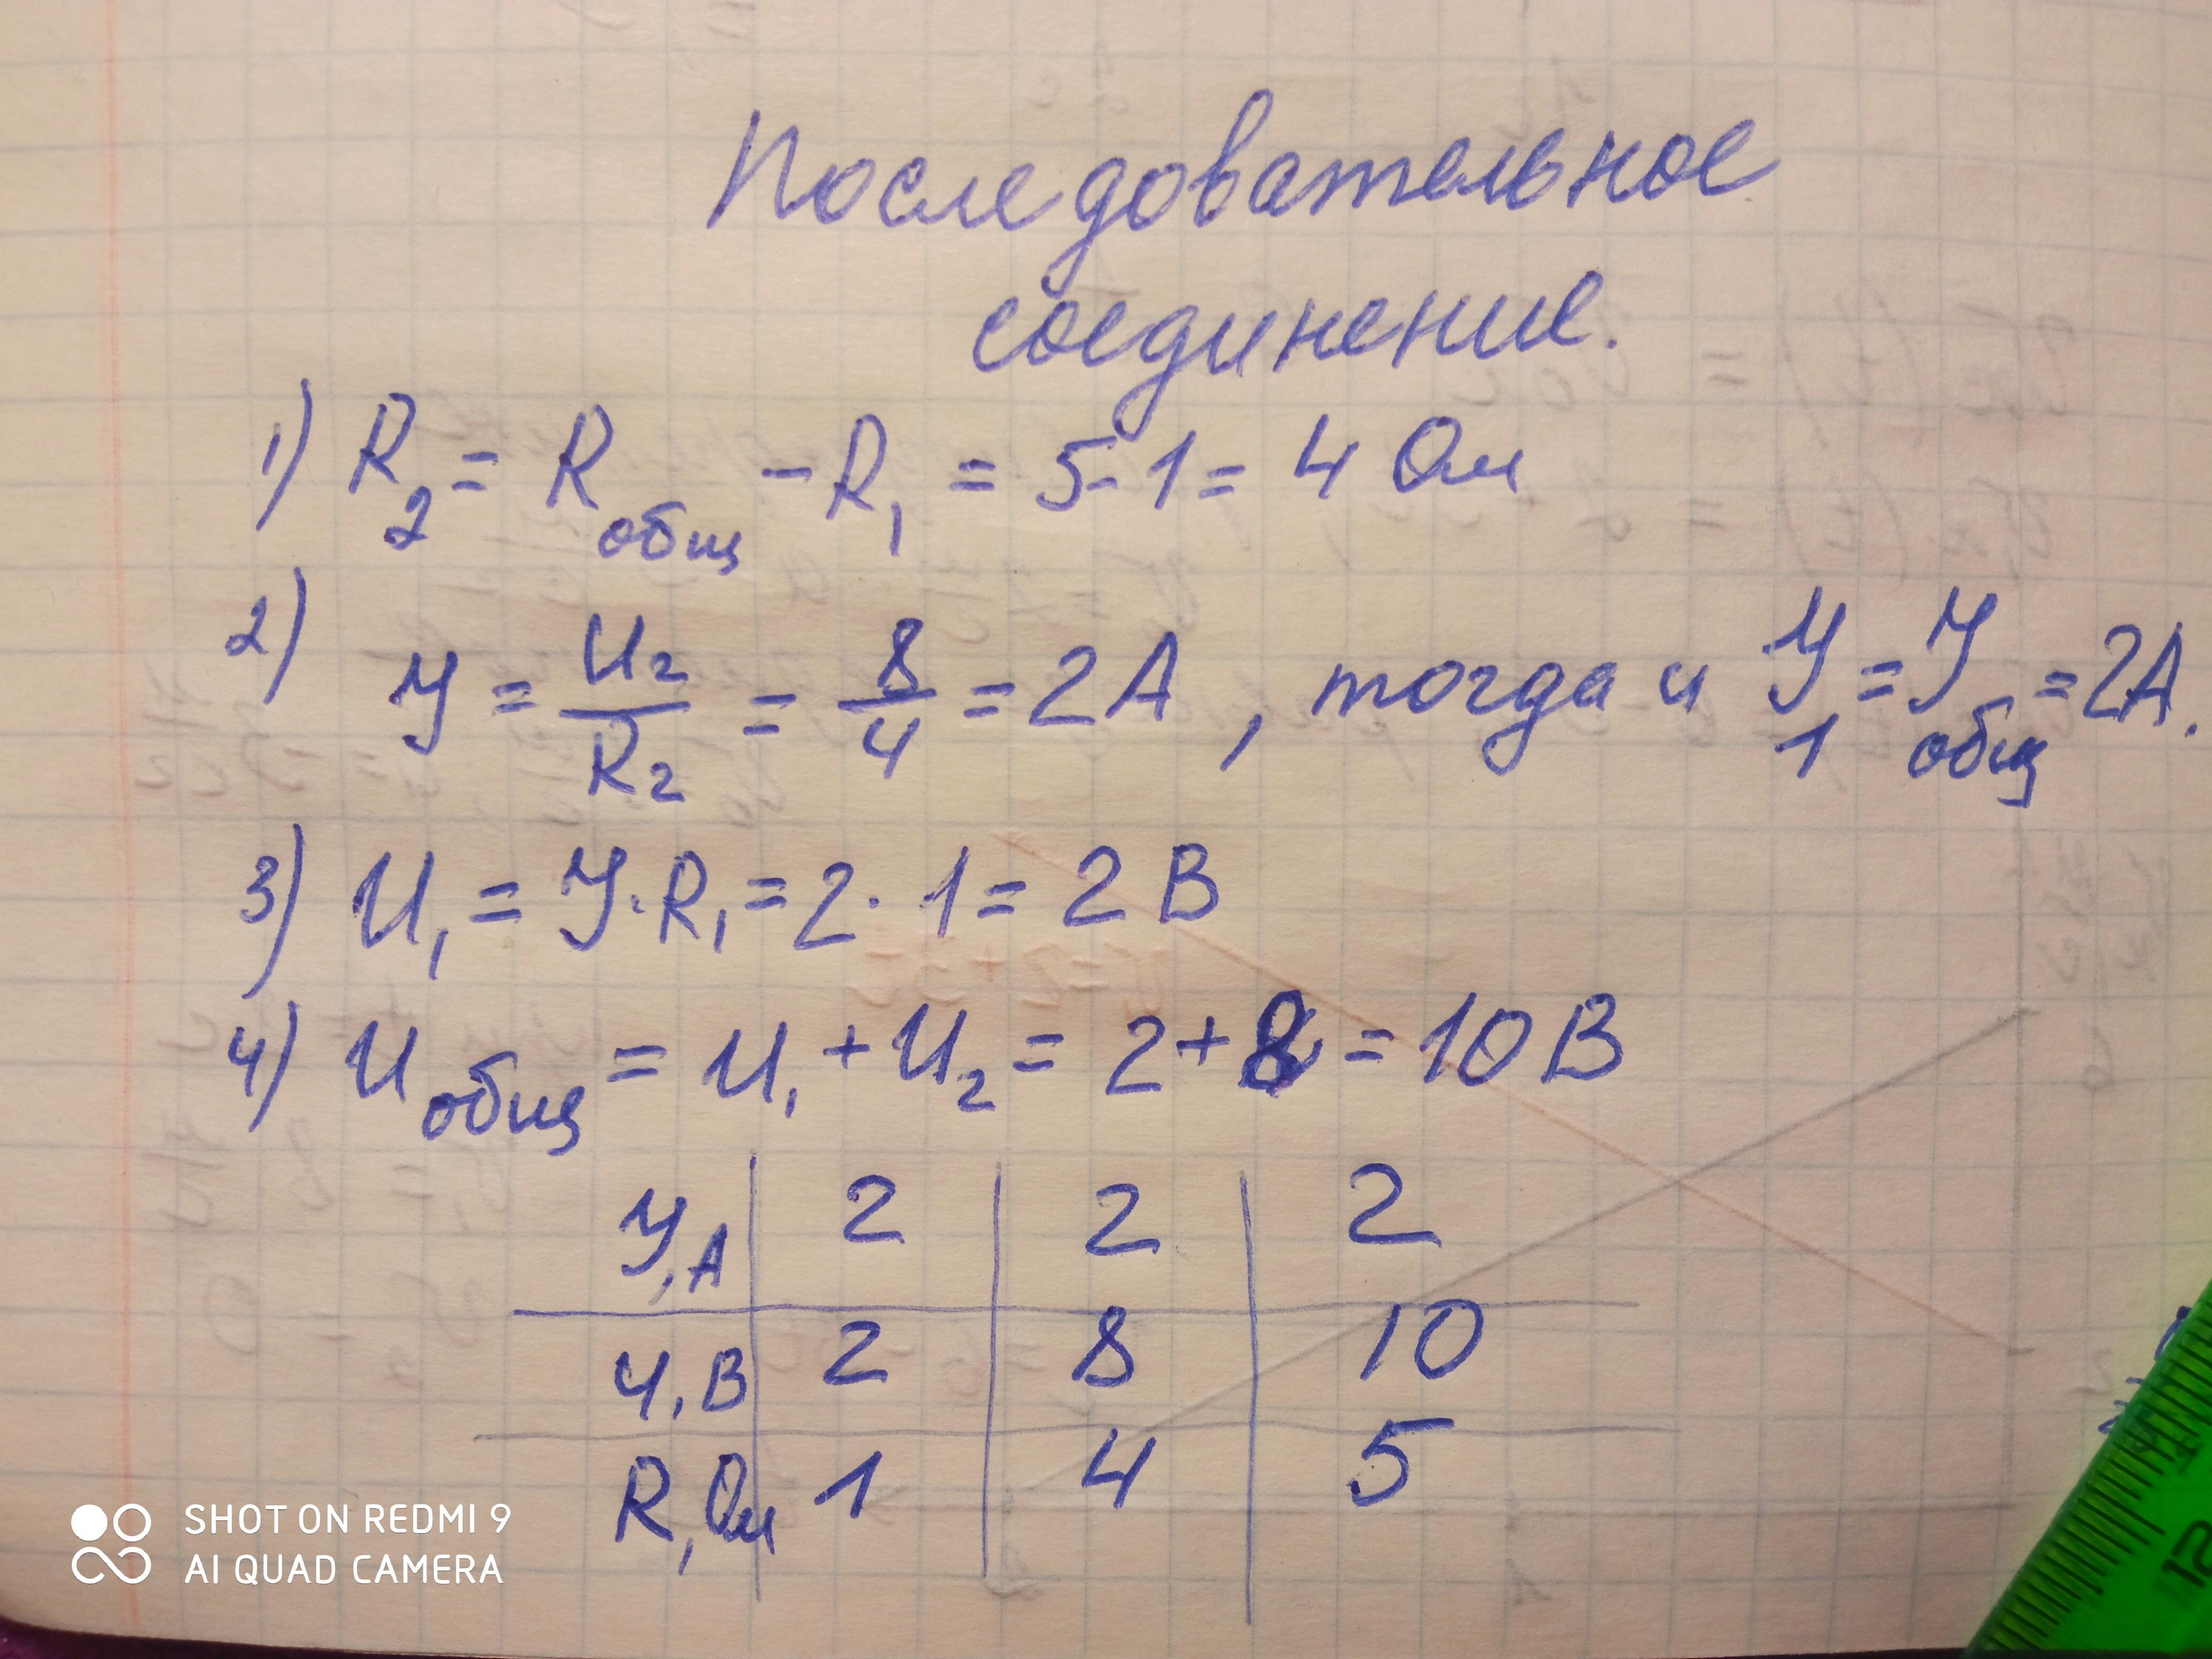 Последовательное
соединение.
1) R₂ = R общ - R₁ = 5 - 1 = 4 Ом
2) У = U₂/R₂ = 8/4 = 2А, тогда и У₁ = У общ = 2А.
3) U₁ = У · R₁ = 2 · 1 = 2 В
4) U общ = U₁ + U₂ = 2 + 8 = 10 В
У, А 2 2 2
U, В 2 8 10
R, Ом 1 4 5
SHOT ON REDMI 9
AI QUAD CAMERA
12